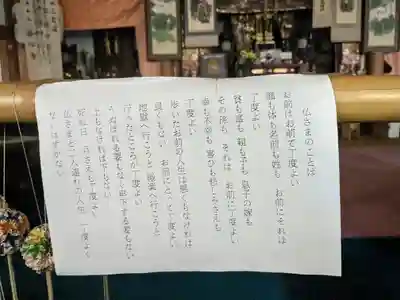 仏さまのことば
お前はお前で丁度よい
顔も体も名前も姓も お前にそれは
丁度よい
貧も富も 親も子も 息子の嫁も
その孫も それは お前に丁度よい
幸も不幸も 喜びも悲しみさえも
丁度よい
歩いたお前の人生は悪くもなければ
良くもない お前にとって丁度よい
地獄へ行こうと 極楽へ行こうと
行ったところが丁度よい
うぬぼれる要もなく卑下する要もない
上もなければ下もない
死ぬ日 月さえも丁度よい
仏さまと二人連れの人生 丁度よく
ないはずがない